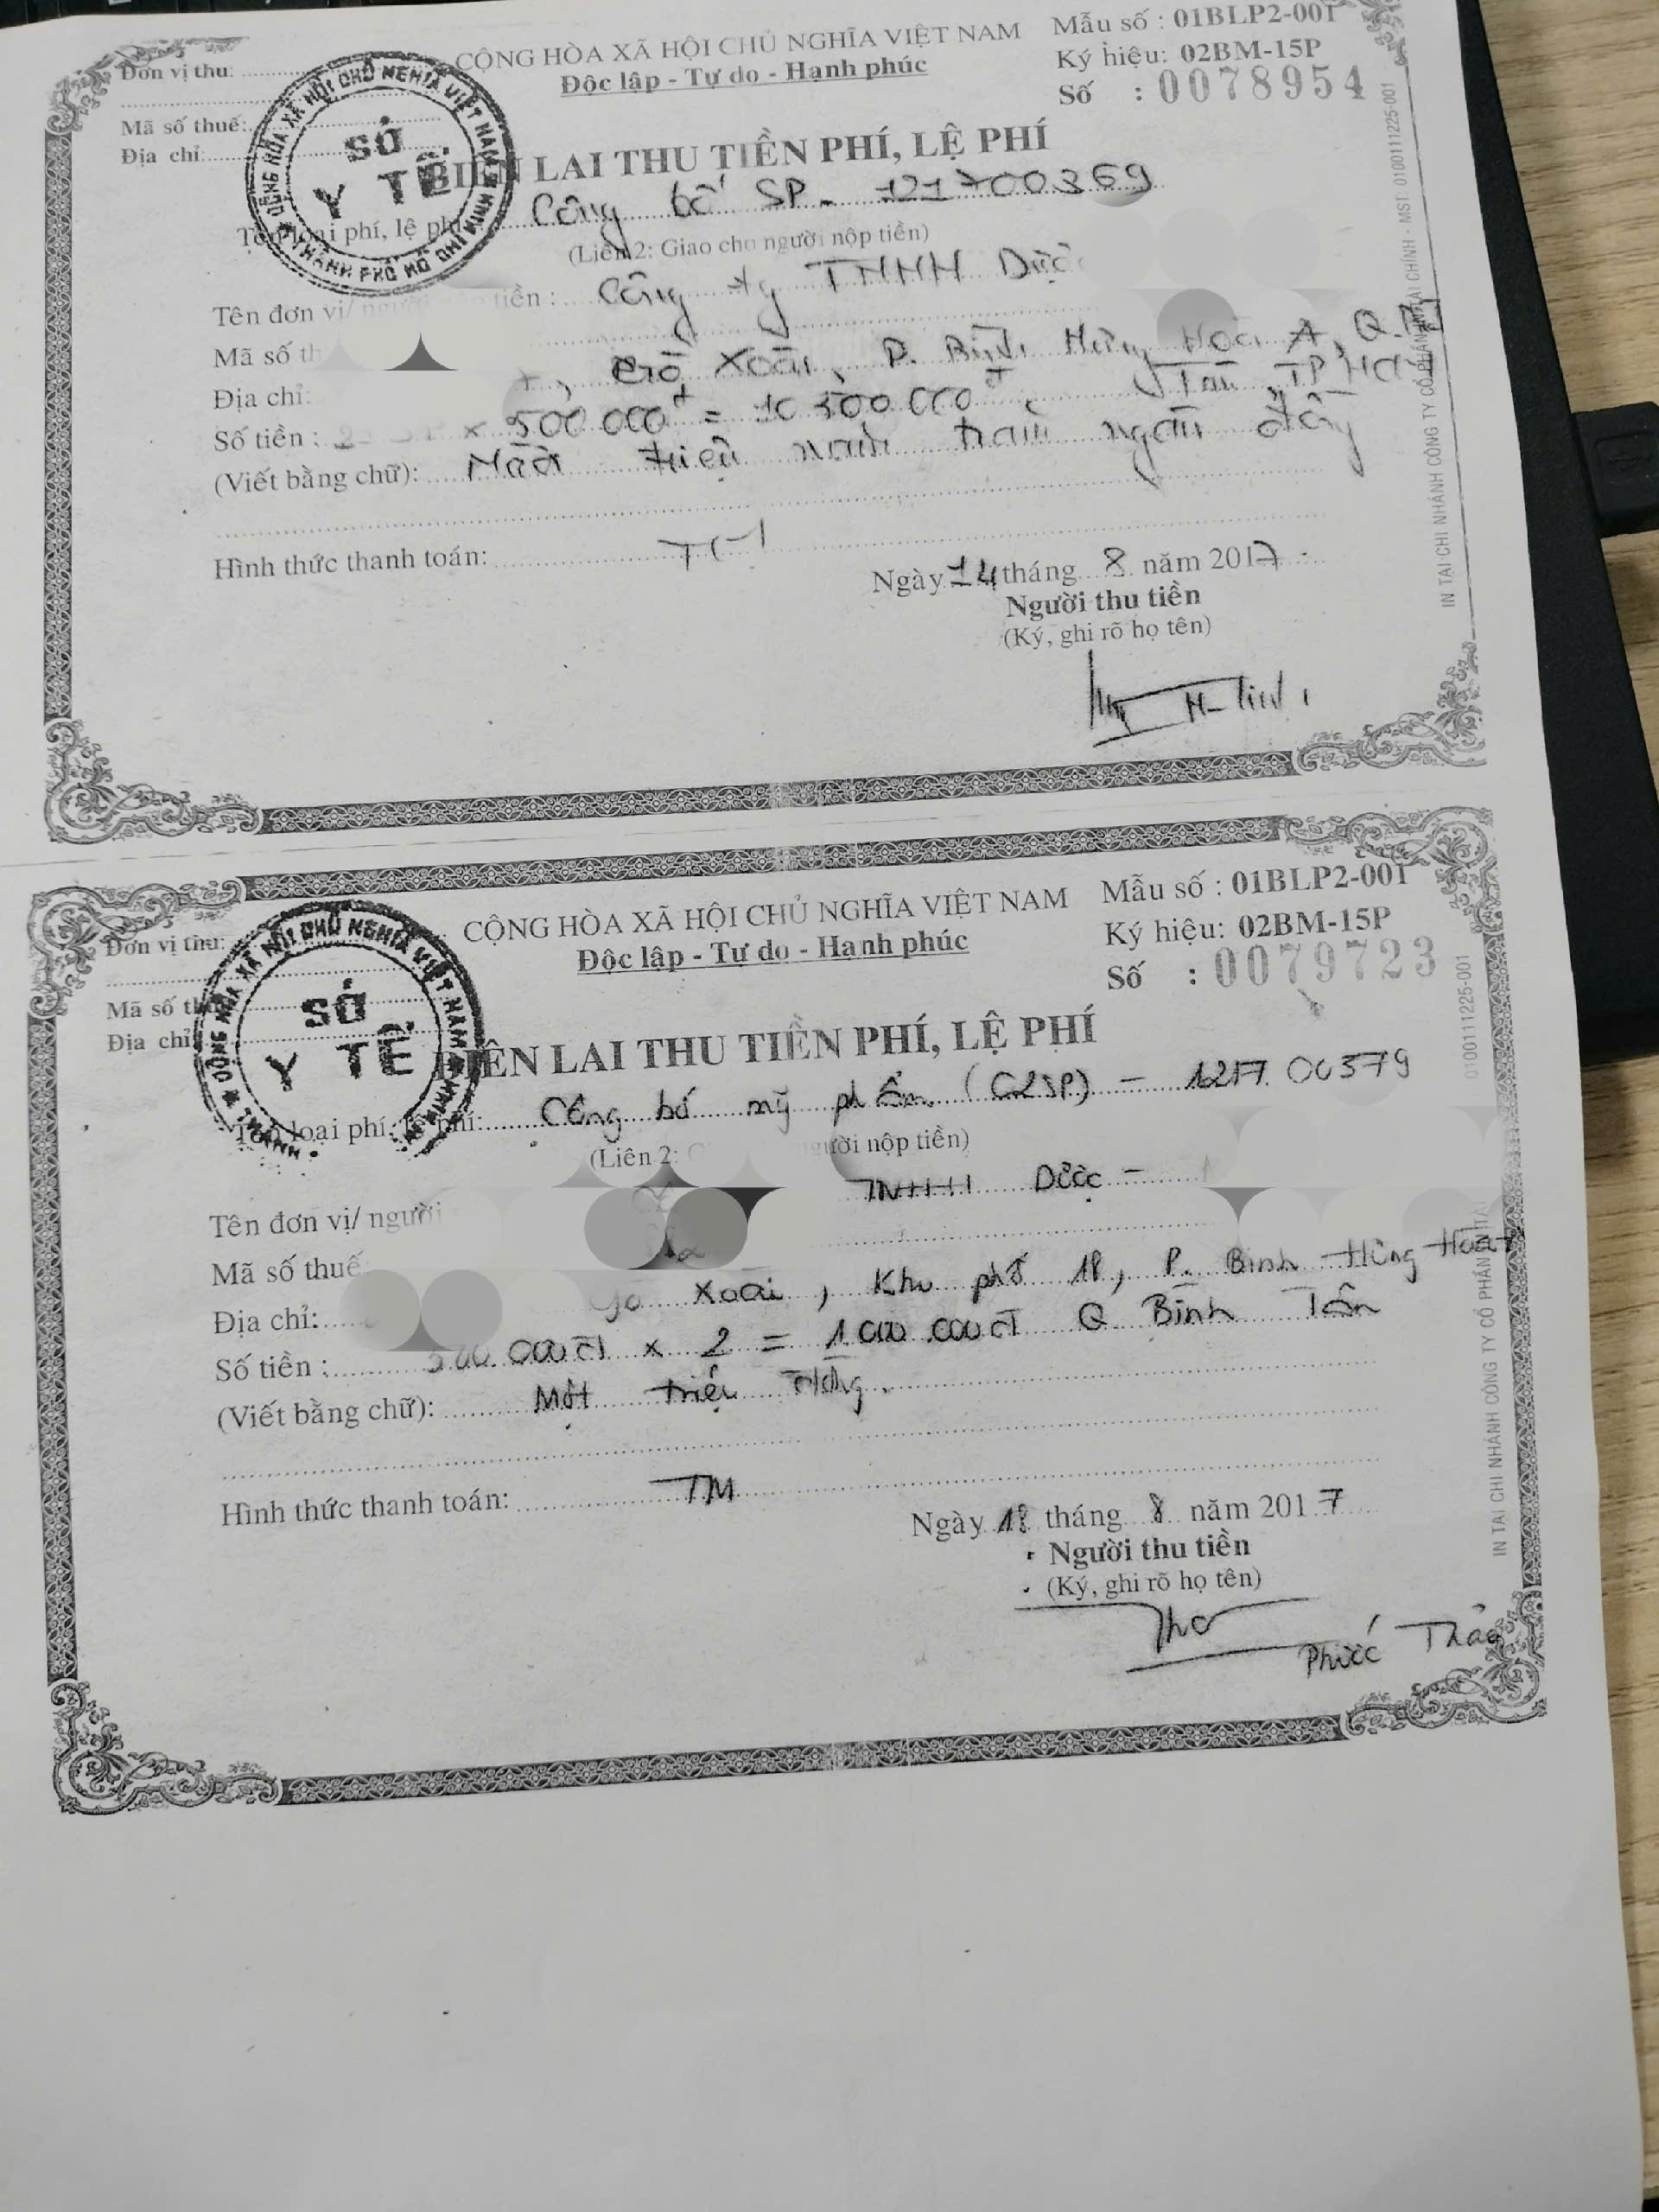 CỘNG HÒA XÃ HỘI CHỦ NGHĨA VIỆT NAM
Độc lập - Tự do - Hạnh phúc
Mẫu số : 01BLP2-001
Ký hiệu: 02BM-15P
Số : 0078954
Đơn vị thu:
Mã số thuế:
Địa chỉ:
CỘNG HÒA XÃ HỘI CHỦ NGHĨA VIỆT NAM
THÀNH PHỐ HỒ CHÍ MINH
SỞ
Y TẾ
BIÊN LAI THU TIỀN PHÍ, LỆ PHÍ
Tên loại phí, lệ phí Công bố SP - 121700369
(Liên 2: Giao cho người nộp tiền)
Tên đơn vị/ tiền : Công ty TNHH Dược
Mã số
Địa chỉ: Gò Xoài, P. Bình Hưng Hòa A, Q.
Tân, TP HCM
Số tiền : x 500 000đ = 10 500 000đ
(Viết bằng chữ): Mười triệu năm trăm ngàn đồng
Hình thức thanh toán:
Ngày 14 tháng 8 năm 2017
Người thu tiền
(Ký, ghi rõ họ tên)
IN TẠI CHI NHÁNH CÔNG TY CỔ PHẦN IN TÀI CHÍNH - MST: 0100111225-001
CỘNG HÒA XÃ HỘI CHỦ NGHĨA VIỆT NAM
Độc lập - Tự do - Hạnh phúc
Mẫu số : 01BLP2-001
Ký hiệu: 02BM-15P
Số : 0079723
Đơn vị thu:
Mã số
Địa chỉ
SỞ
Y TẾ
BIÊN LAI THU TIỀN PHÍ, LỆ PHÍ
Tên loại phí, lệ phí: Công bố mỹ phẩm (02SP) - 1217.00379
(Liên 2: người nộp tiền)
Tên đơn vị/ người TNHH Dược -
Mã số thuế
Địa chỉ: Gò Xoài, Khu phố 18, P. Bình Hưng Hòa A
Q Bình Tân
Số tiền : 500.000đ x 2 = 1.000.000đ
(Viết bằng chữ): Một triệu đồng.
Hình thức thanh toán: TM
Ngày 18 tháng 8 năm 2017
Người thu tiền
(Ký, ghi rõ họ tên)
Phước Thảo
IN TẠI CHI NHÁNH CÔNG TY CỔ PHẦN IN TÀI
0100111225-001